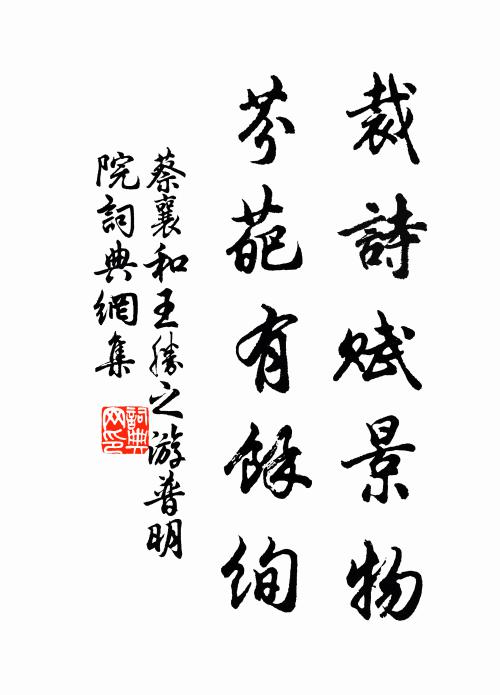 裁詩賦景物
芬葩有餘絢
蔡襄和王勝之游普明
院詞典網集
詞典
网印